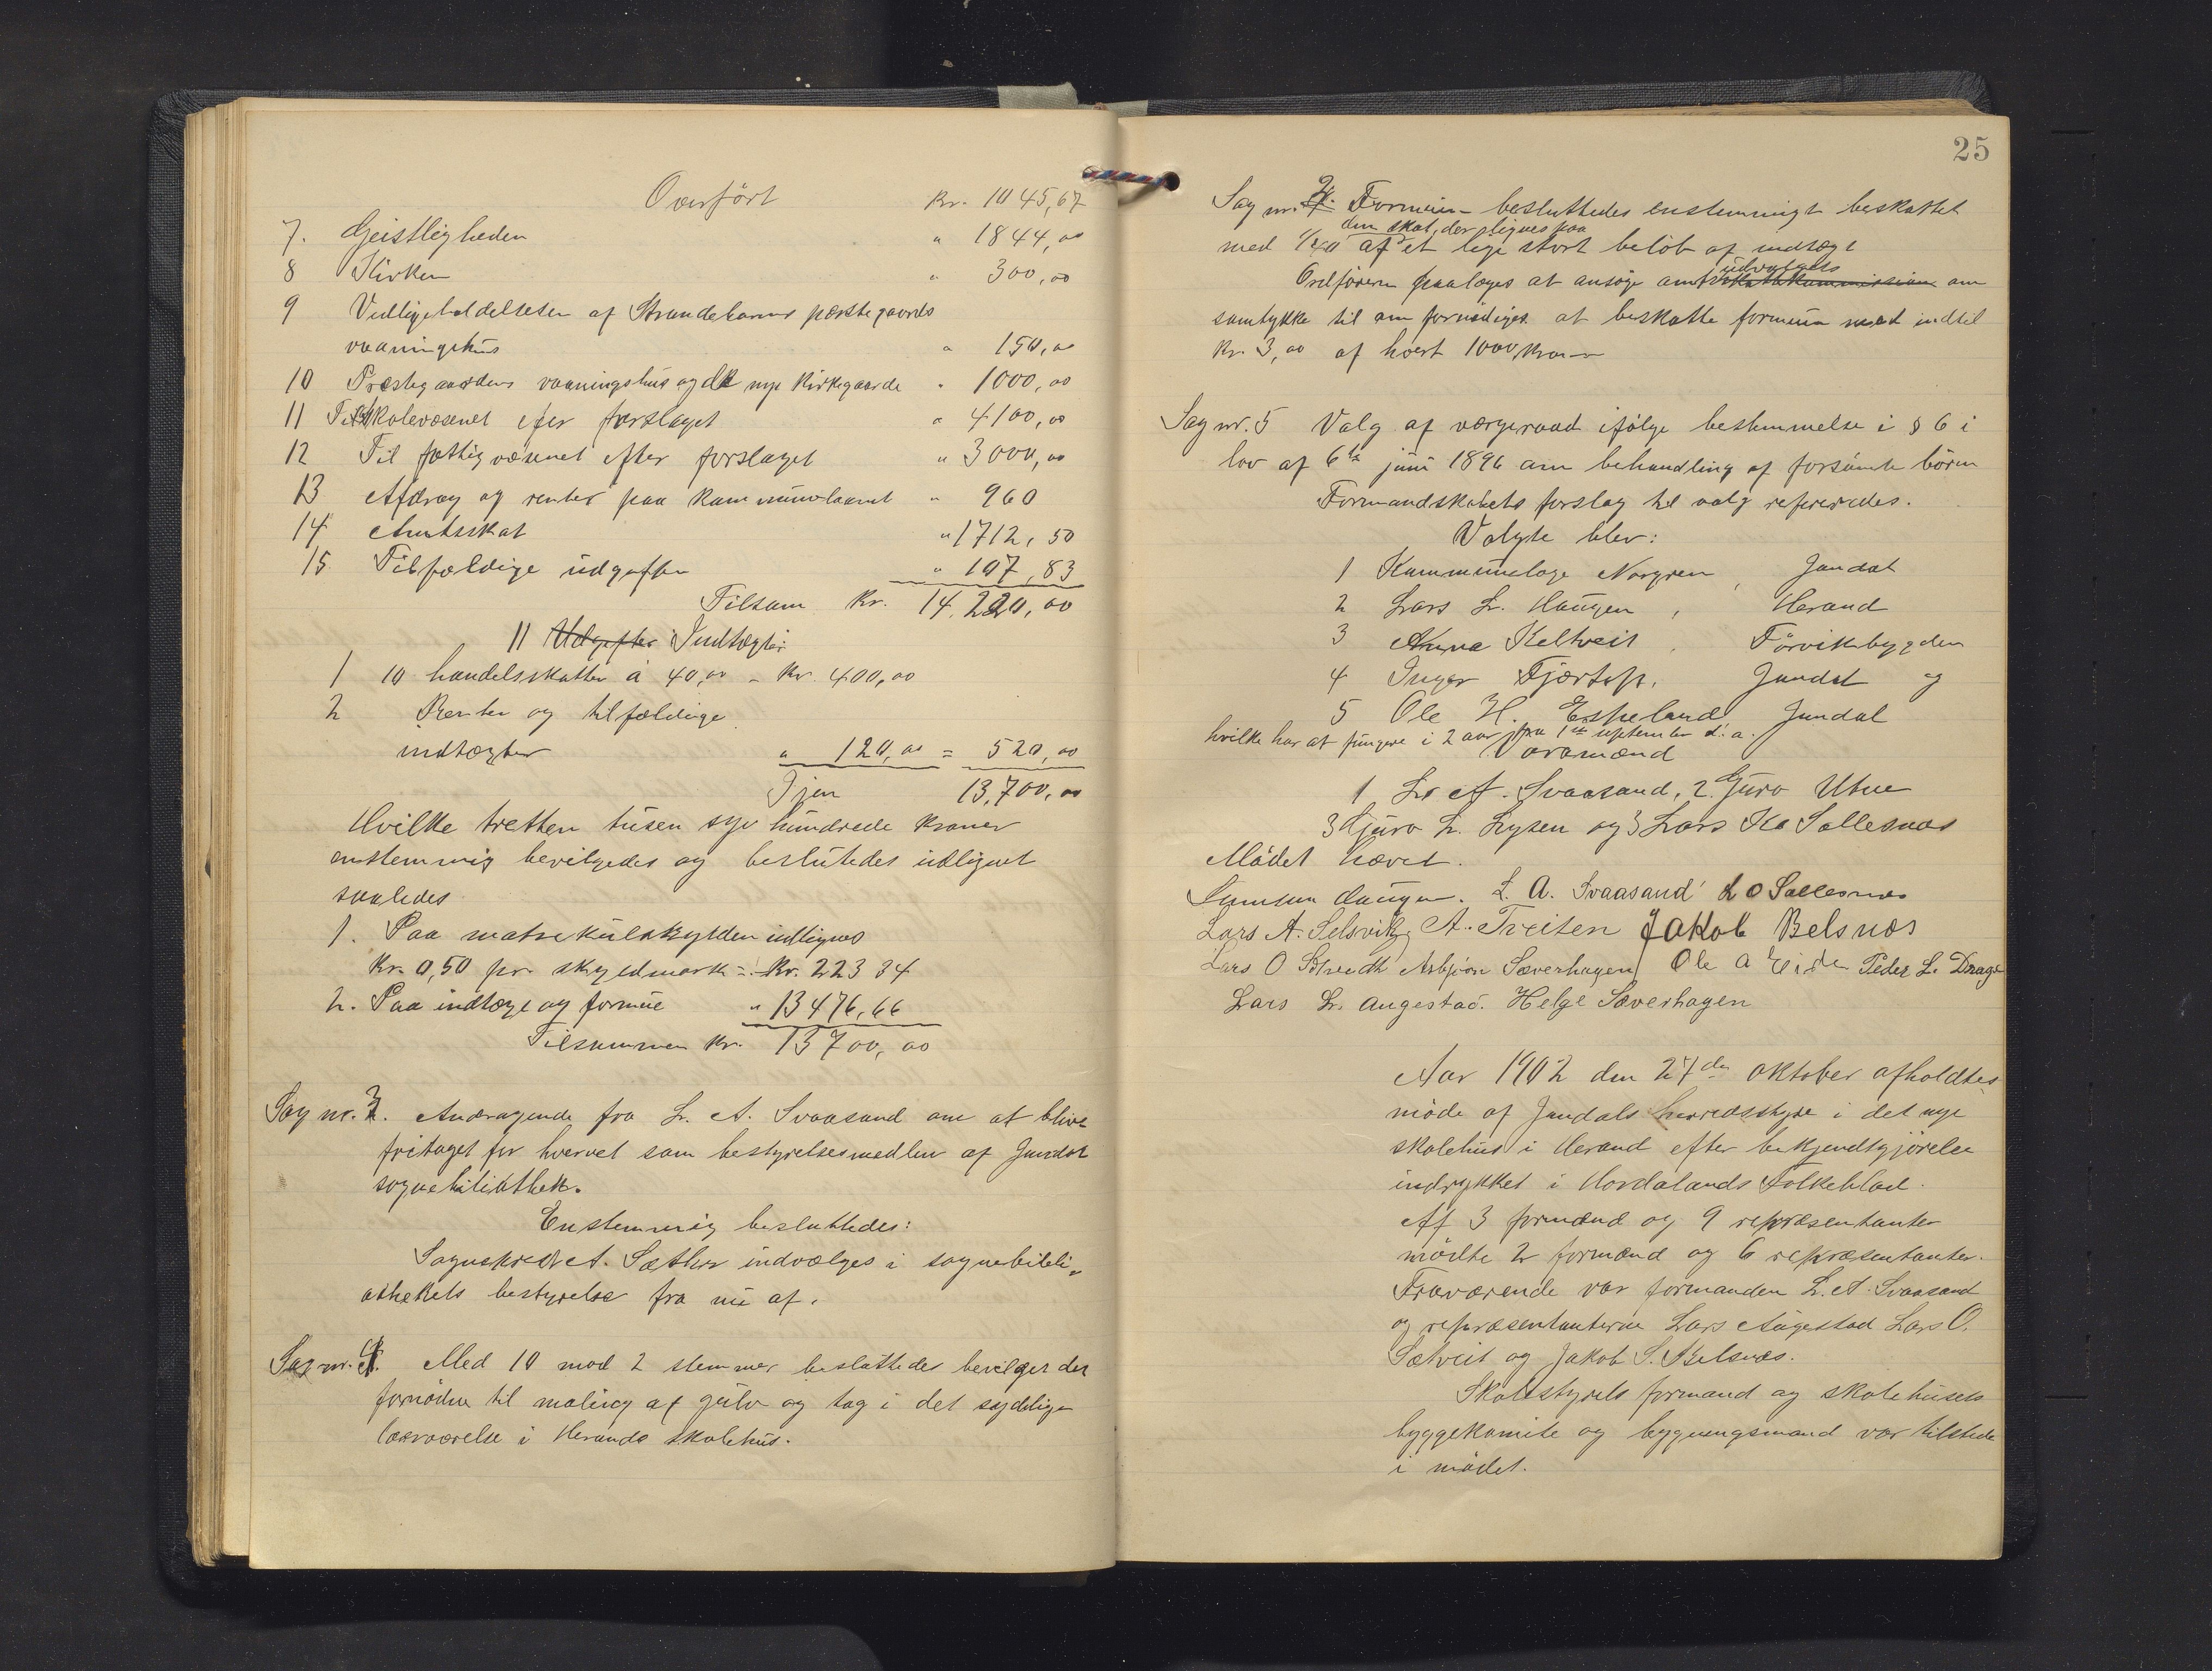 Overført kr. 1045,67
7. Geistligheden " 1844,00
8 Kirken " 300,00
9 Vedligeholdelsen af Strandebarms præstegaards
vaaningshus " 150,00
10 Præstegaardens vaaningshus og nye kirkegaarde " 1000,00
11 Til skolevæsenet efter forslaget " 4100,00
12 Til fattigvæsenet efter forslaget " 3000,00
13 Afdrag og renter paa kommunelaanet " 960
14 Amtsskat " 1712,50
15 Tilfældige udgifter " 107,83
Tilsam kr. 14.220,00
11 Udgifter Indtægter
1 10 handelsskatter á 40,00 = kr. 400,00
2 Renter og tilfældige
indtægter " 120,00 = 520,00
Igjen 13,700,00
Hvilke tretten tusen syv hundrede kroner
enstemmig bevilgedes og beslutedes udlignet
saaledes
1. Paa matrikulskylden udlignes
kr. 0,50 pr. skyldmark = kr. 223 34
2. Paa indtægt og formue " 13476,66
Tilsammen kr. 13700,00
Sag nr. 3. Andragende fra L. A. Svaasand om at blive
fritaget for hvervet som bestyrelsesmedlem af Jondal
sognebibliothek.
Enstemmig besluttedes:
Sogneprest A. Sæther indvælges i sognebibli-
othekets bestyrelse fra nu af.
Sag nr. 4. Med 10 mod 2 stemmer besluttedes bevilget det
fornødne til maling af gulv og tag i det sydlige
læseværelse i Herands skolehus.
25
Sag nr. 2. Formuen besluttedes enstemmigt beskattet
den skat, der lignes paa
med af et lige stort beløb af indtægt
udvalgets
Ordføreren paalæges at ansøge amtsskatkommissionen om
samtykke til om fornødiges at beskatte formuen med indtil
kr. 3,00 af hvert 1000 kroner
Sag nr. 5 Valg af værgeraad ifølge bestemmelse i § 6 i
lov af 6te juni 1896 om behandling af forsømte børn
Formandskabets forslag til valg refereredes.
Valgte blev:
1 Kommunelæge Norgren, Jondal
2 Lars L. Haugen, Herand
3 Anna Keltveit, Törvikbygden
4 Inger Fjærtoft, Jondal og
5 Ole H. Espeland, Jondal
hvilke har at fungere i 2 aar fra 1ste september d. a.
Varamænd
1 L. A. Svaasand, 2. Guro Utne
3 Guro L. Lysen og 3 Lars Ks Sollesnæs
Mødet hævet.
Samson Haugen. L. A. Svaasand L O Sollesnes
Lars A. Selsvik, A. Treiten Jakob Belsnæs
Lars O Asbjörn Sæverhagen Ole A Eide Peder L. Drage
Lars L. Augestad. Helge Sæverhagen
Aar 1902 den 27de oktober afholdtes
møde af Jondals herredsstyre i det nye
skolehus i Herand efter bekjendtgjörelse
indrykket i Hordalands Folkeblad.
Af 3 formænd og 9 repræsentanter
mødte 2 formænd og 6 repræsentanter.
Fraværende var formanden L. A. Svaasand
og repræsentanterne Lars Augestad Lars O.
Sætveit og Jakob S. Belsnæs.
Skolestyrets formand og skolehusets
byggekomite og bygningsmand var tilstede
i mødet.